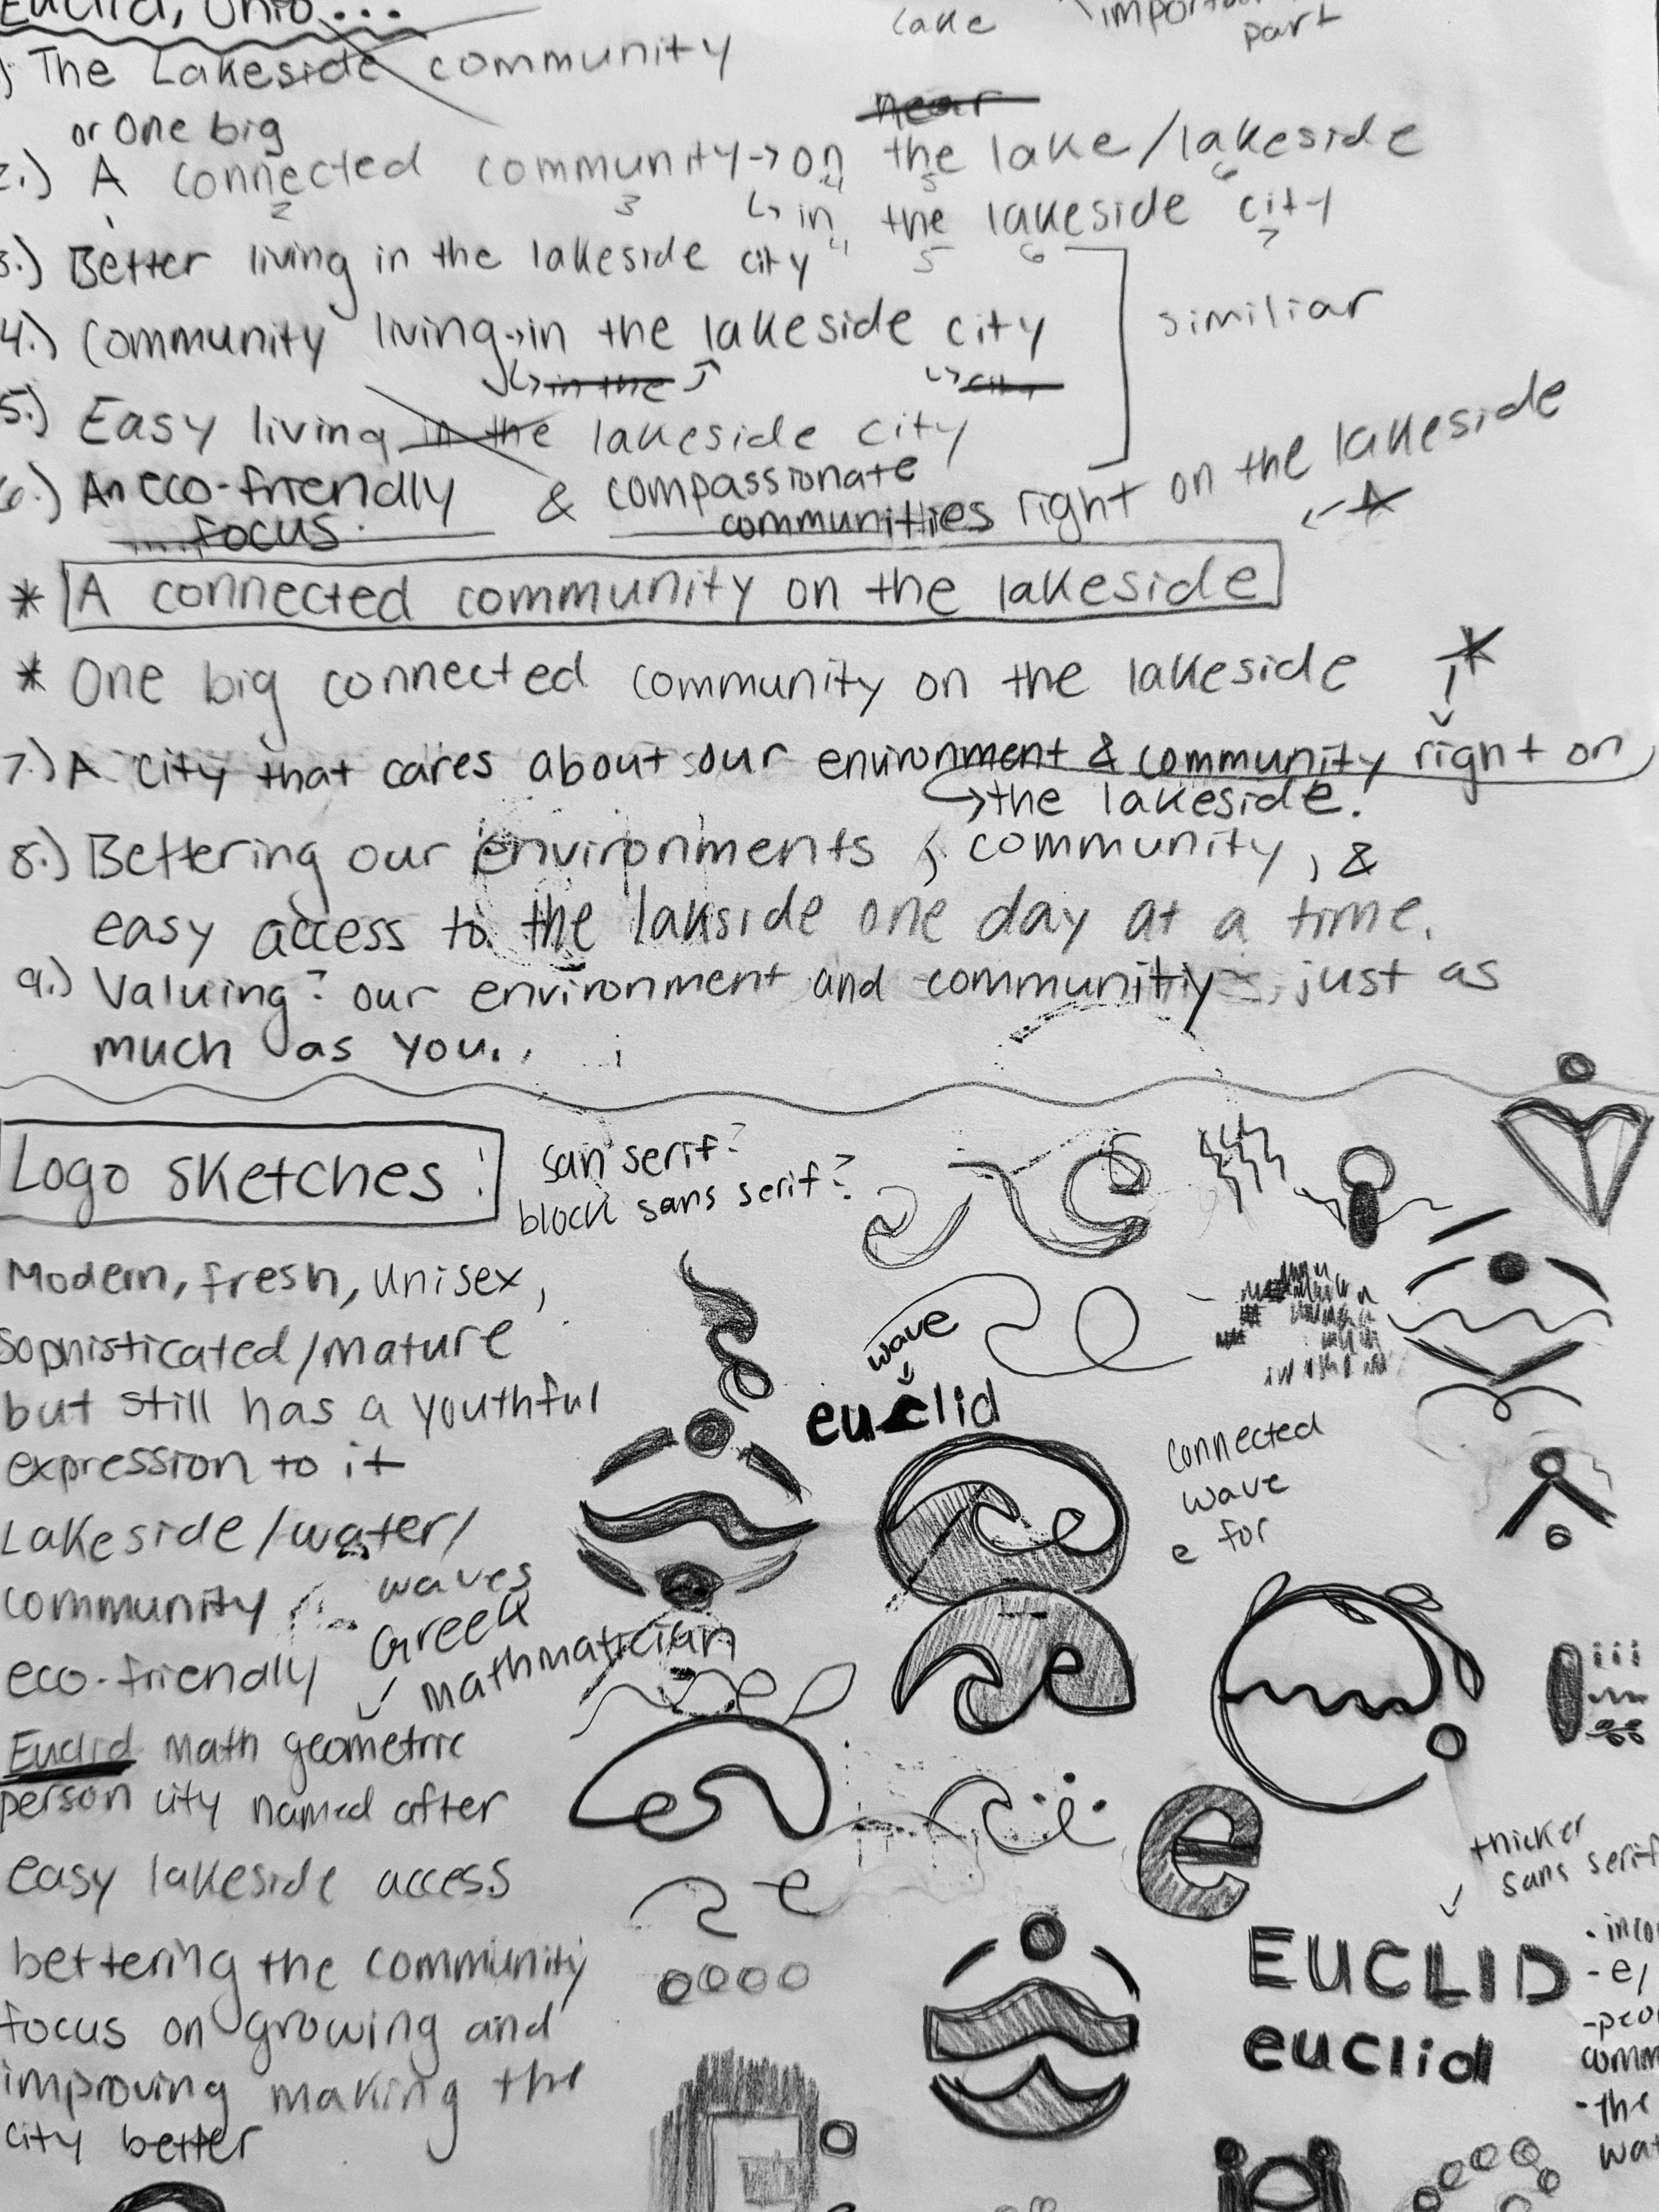 Euclid, Ohio...
lake
important
part
The Lakeside community
near
or One big
2.) A connected community → on the lake/lakeside
2 3 4 5 6
↳ in the lakeside city
4 5 6 7
3.) Better living in the lakeside city
similiar
4.) Community living → in the lakeside city
↳ in the
↳ city
5.) Easy living in the lakeside city
6.) An eco-friendly & compassionate
focus communities right on the lakeside
* A connected community on the lakeside
* One big connected community on the lakeside
7.) A city that cares about our environment & community right on
→ the lakeside.
8.) Bettering our environments, community, &
easy access to the lakside one day at a time.
9.) Valuing our environment and community, just as
much as you.
Logo sketches:
san serif?
block sans serif?
Modern, fresh, unisex,
sophisticated/mature
but still has a youthful
expression to it
Lakeside/water/
waves
community
eco-friendly
Greek
mathmatician
Euclid math geometric
person city named after
easy lakeside access
bettering the community
focus on growing and
improving making the
city better
wave
euclid
connected
wave
e for
e
thicker
sans serif
EUCLID
euclid
- e/
- the